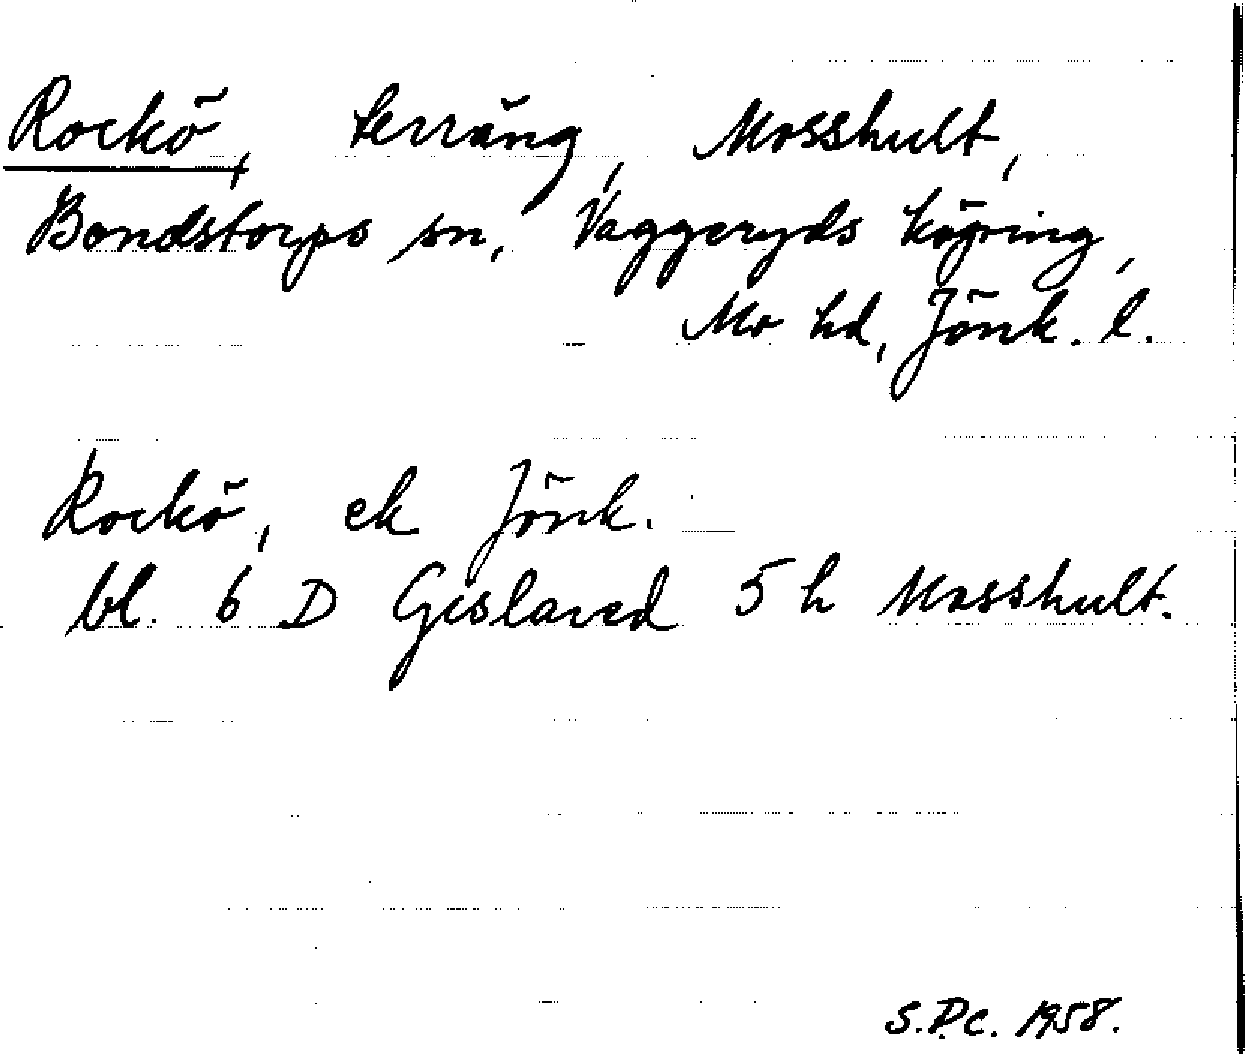 Rockö, terräng, Mosshult,
Bondstorps sn, Vaggeryds köping,
Mo hd, Jönk. l.
Rockö, ek Jönk.
bl. 6 D Gislaved 5 h Mosshult.
S.P.C. 1958.